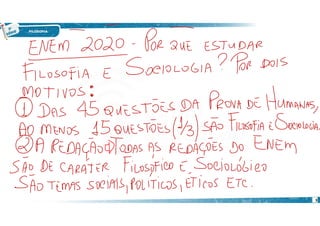 FILOSOFIA
ENEM 2020 - POR QUE ESTUDAR
FILOSOFIA E SOCIOLOGIA? POR DOIS
MOTIVOS:
① DAS 45 QUESTÕES DA PROVA DE HUMANAS,
AO MENOS 15 QUESTÕES (1/3) SÃO FILOSOFIA E SOCIOLOGIA.
② A REDAÇÃO TODAS AS REDAÇÕES DO ENEM
SÃO DE CARÁTER FILOSÓFICO E SOCIOLÓGICO
SÃO TEMAS SOCIAIS, POLÍTICOS, ÉTICOS ETC.